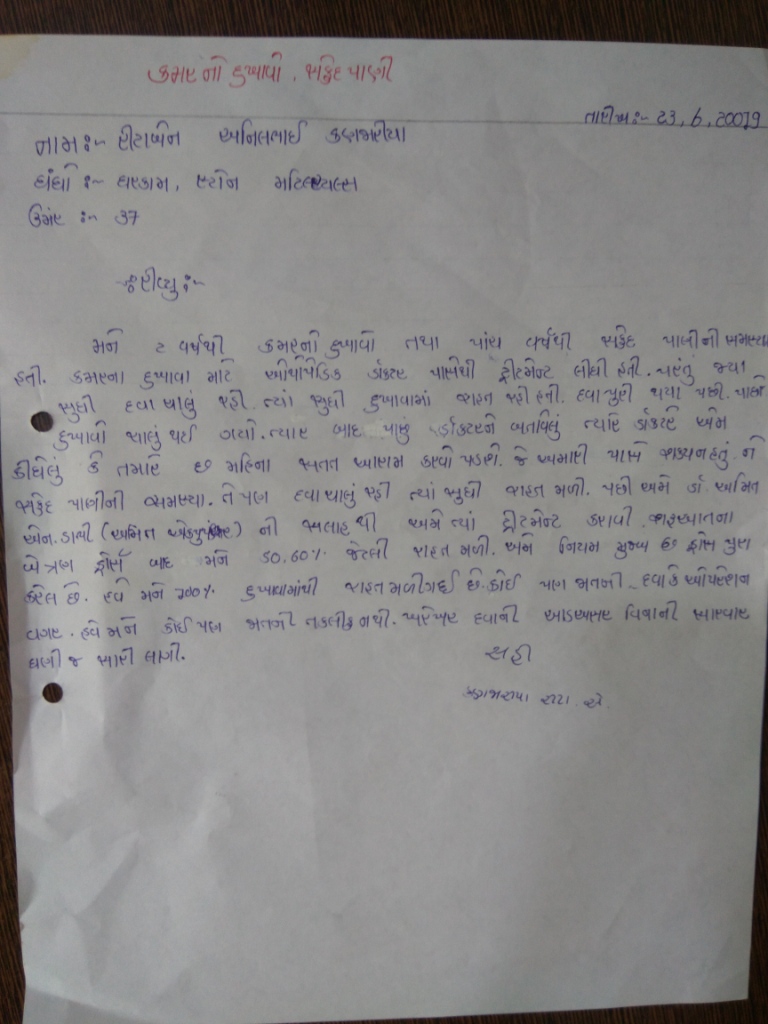 કમરનો દુખાવો, સફેદ પાણી
તારીખઃ- 23.6.20019
નામઃ- રીટાબેન અનિલભાઈ કણજારીયા
ધંધોઃ- ઘરકામ, સ્ટોન
ઉંમરઃ- 37
રીવ્યુઃ-
મને ૨ વર્ષથી કમરનો દુખાવો તથા પાંચ વર્ષથી સફેદ પાણીની સમસ્યા
હતી. કમરના દુખાવા માટે ઓર્થોપેડિક ડૉક્ટર પાસેથી ટ્રીટમેન્ટ લીધી હતી. પરંતુ જ્યા
સુધી દવા ચાલું રહી ત્યાં સુધી દુખાવામાં રાહત રહી હતી. દવા પુરી થયા પછી. પાછો
દુખાવો ચાલું થઈ ગયો. ત્યાર બાદ પાછું ડૉક્ટરને બતાવેલું ત્યારે ડૉક્ટરે એમ
કીધેલું કે તમારે છ મહિના સતત આરામ કરવો પડશે. જે અમારી પાસે શક્ય ન હતું. ને
સફેદ પાણીની સમસ્યા. તે પણ દવા ચાલું રહી ત્યાં સુધી રાહત મળી. પછી અમે ડૉ. અમિત
એન. ડાભી (અમિત) ની સલાહથી અમે ત્યાં ટ્રીટમેન્ટ કરાવી. શરૂઆતના
બે ત્રણ કોર્સ બાદ મને 50.60% જેટલી રાહત મળી. અને નિયમ મુજબ છ કોર્સ પુરા
કરેલ છે. હવે મને 100% દુખાવામાંથી રાહત મળી ગઈ છે. કોઈ પણ જાતની દવા કે ઓપરેશન
વગર. હવે મને કોઈ પણ જાતની તકલીફ નથી. ખરેખર દવાની આડઅસર વિનાની સારવાર
ઘણી જ સારી લાગી.
સહી
કણજારીયા રીટા. એ.